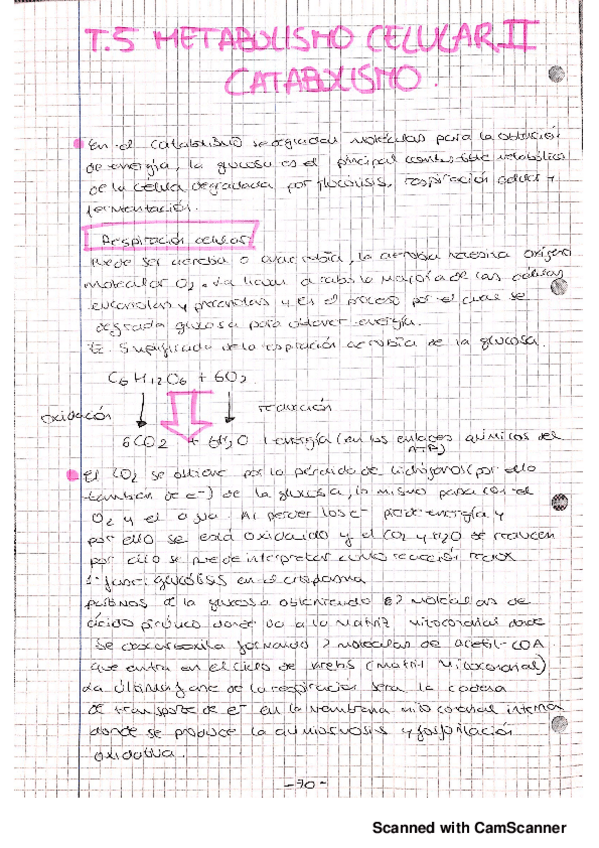 T.5 METABOLISMO CELULAR II
CATABOLISMO.
En el catabolismo se degradan moléculas para la obtención
de energía, la glucosa es el principal combustible metabólico
de la célula degradada por glucólisis, respiración celular y
fermentación.
Respiración celular
Puede ser aerobia o anaerobia, la aerobia necesita oxígeno
molecular O2. La llevan a cabo la mayoría de las células
eucariotas y procariotas y es el proceso por el cual se
degrada glucosa para obtener energía.
E. Simplificada de la respiración aerobia de la glucosa.
C6H12O6 + 6O2
oxidación reducción
6CO2 + 6H2O energía (en los enlaces químicos del
ATP)
El CO2 se obtiene por la pérdida de hidrógenos (por ello
también de e-) de la glucosa, lo mismo para con el
O2 y el agua. Al perder los e- pierde energía y
por ello se está oxidando y el CO2 y H2O se reducen
por ello se puede interpretar como reacción redox
1ª fase: glucólisis en el citoplasma
partimos de la glucosa obteniendo 2 moléculas de
ácido pirúvico donde va a la matriz mitocondrial donde
se descarboxila formando 2 moléculas de acetil-COA
que entra en el ciclo de Krebs (matriz mitocondrial)
La última fase de la respiración será la cadena
de transporte de e- en la membrana mitocondrial interna
donde se produce la quimiosmosis y fosforilación
oxidativa.
-70-
Scanned with CamScanner